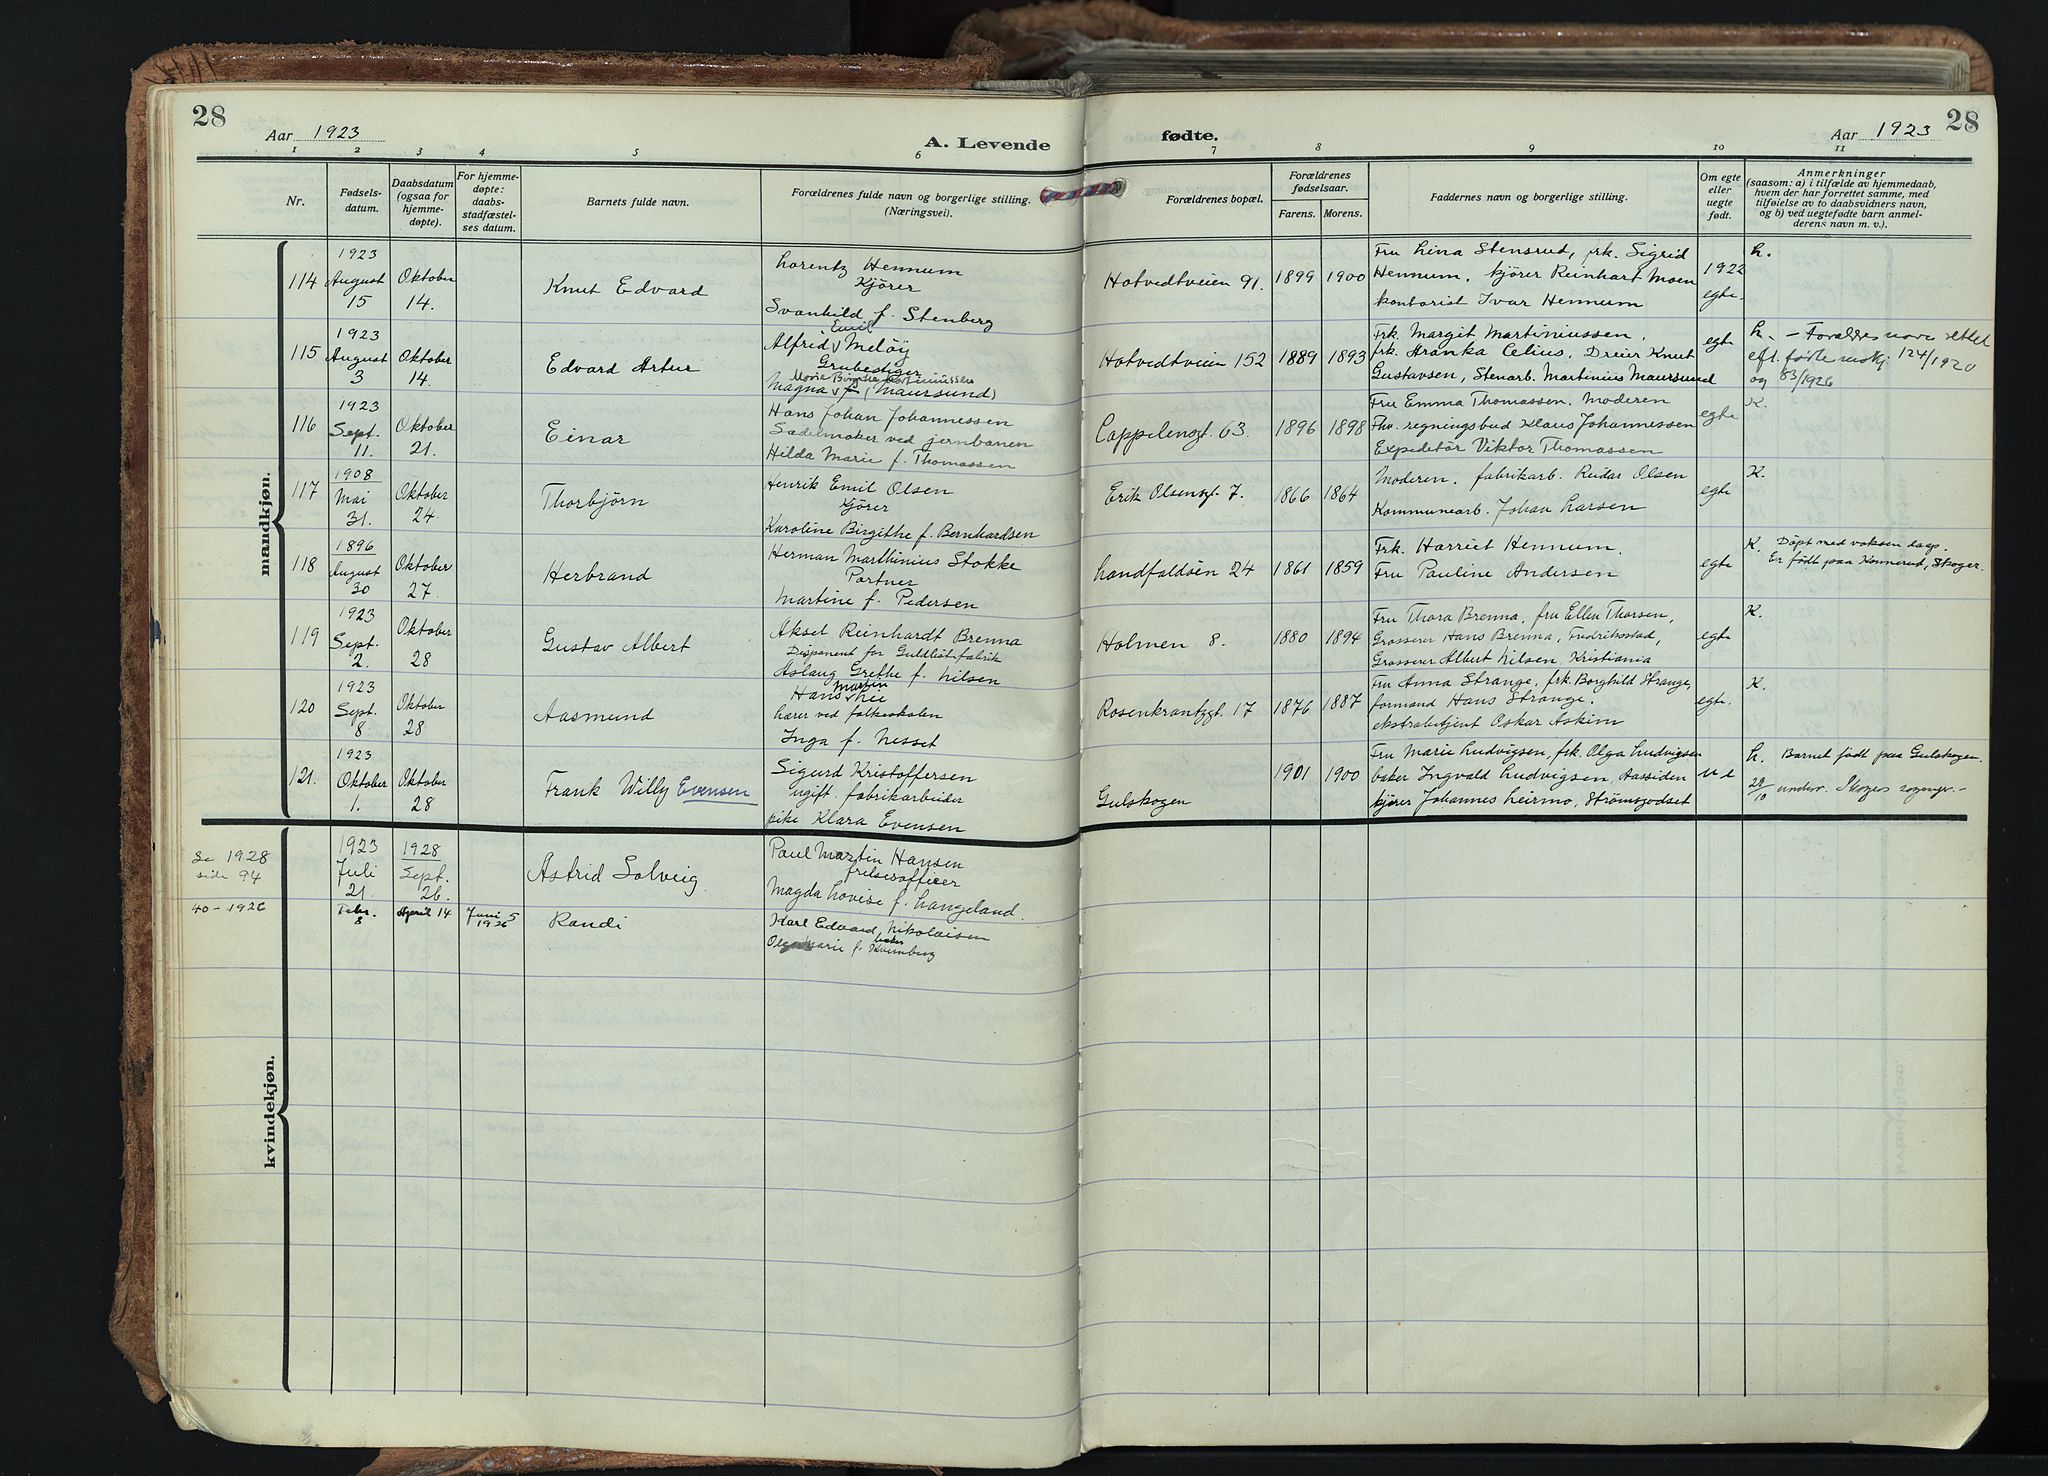 28
Aar 1923
A. Levende
fødte.
Aar 1923
28
1 2 3 4 5 6 7 8 9 10 11
Nr.
Fødsels-
datum.
Daabsdatum
(ogsaa for
hjemme-
døpte).
For hjemme-
døpte:
daabs-
stadfæstel-
ses datum.
Barnets fulde navn.
Forældrenes fulde navn og borgerlige stilling.
(Næringsvei).
Forældrenes bopæl.
Forældrenes
fødselsaar.
Farens. Morens.
Faddernes navn og borgerlige stilling.
Om egte
eller
uegte
født.
Anmerkninger
(saasom: a) i tilfælde av hjemmedaab,
hvem der har forrettet samme, med
tilføielse av to daabsvidners navn,
og b) ved uegtefødte barn anmel-
derens navn m. v.).
mandkjøn.
114
1923
August
15
Oktober
14.
Knut Edvard
Lorentz Hennum
Kjörer
Svanhild f. Stenberg
Hotvedtveien 91.
1899 1900
Fru Lina Stensrud, frk. Sigrid
Hennum, kjörer Reinhart Moen
kontorist Ivar Hennum
1922
egte.
L.
115
1923
August
3
Oktober
14.
Edvard Artur
Emil
Alfrid v Melöy
Grubestiger
Marie Birgithe Martiniussen
Magna v f. (Maursund)
Hotvedtveien 152
1889 1893
Frk. Margit Martiniussen,
frk. Aranka Celius, Dreier Knut
Gustavsen, Stenarb. Martinius Maursund
egte
L. – Forældres navn rettet
eft. förte 124/1920
og 83/1926
116
1923
Sept.
11.
Oktober
21.
Einar
Hans Johan Johannessen
Sadelmaker ved jernbanen
Hilda Marie f. Thomassen
Cappelensgt. 63.
1896 1898
Fru Emma Thomassen. Moderen
Fhv. regningsbud Klaus Johannessen
Expeditör Viktor Thomassen
egte
K.
117
1908
Mai
31.
Oktober
24.
Thorbjörn
Henrik Emil Olsen
Kjörer
Karoline Birgithe f. Bernhardsen
Erik Olsensgt. 7.
1866 1864
Moderen, fabrikarb. Reidar Olsen
Kommunearb. Johan Larsen
egte
K.
118
1896
August
30
Oktober
27.
Herbrand
Herman Marthinius Stokke
Portner
Martine f. Pedersen
Landfaldöen 24
1861 1859
Frk. Harriet Hennum.
Fru Pauline Andersen
egte
K. Döpt med voksen daap.
Er födt paa Konnerud, Skoger.
119
1923
Sept.
2.
Oktober
28
Gustav Albert
Aksel Reinhardt Brenna
Disponent for Guldlistfabrik
Aslaug Grethe f. Nilsen
Holmen 8.
1880 1894
Fru Thora Brenna, fru Ellen Thorsen,
Grosserer Hans Brenna, Fredriksstad,
Grosserer Albert Nilsen, Kristiania
egte
K.
120
1923
Sept.
8.
Oktober
28
Aasmund
Martin
Hans v Lie
Lærer ved folkeskolen
Inga f. Nesset
Rosenkrantzgt. 17
1876 1887
Fru Anna Strange, frk. Borghild Strange,
formand Hans Strange.
ekstrabetjent Oskar Askim
egte.
K.
121.
1923
Oktober
1.
Oktober
28
Frank Willy Evensen
Sigurd Kristoffersen
ugift, fabrikarbeider
pike Klara Evensen
Gulskogen
1901 1900
Fru Marie Ludvigsen, frk. Olga Ludvigsen
baker Ingvald Ludvigsen, Aassiden
kjörer Johannes Leirmo, Strømsgodset
u e
L. Barnet födt paa Gulskogen.
29/10 underr. Skogers sognepr. –
kvindekjøn.
Se 1928
side 94
1923
Juli
21.
1928
Sept.
26.
Astrid Solveig.
Paul Martin Hansen
frelsesofficer
Magda Lovise f. Langeland.
40-1926
Febr.
8
April 14
Juni 5
1926
Randi
Karl Edvard Nikolaisen
baker
Olga Marie f. Kvernberg